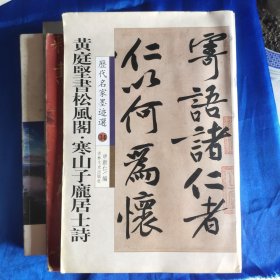 黃庭堅書松風閣·寒山子龐居士詩
歷代名家墨迹選
14
寄語諸仁者
仁以何爲懷